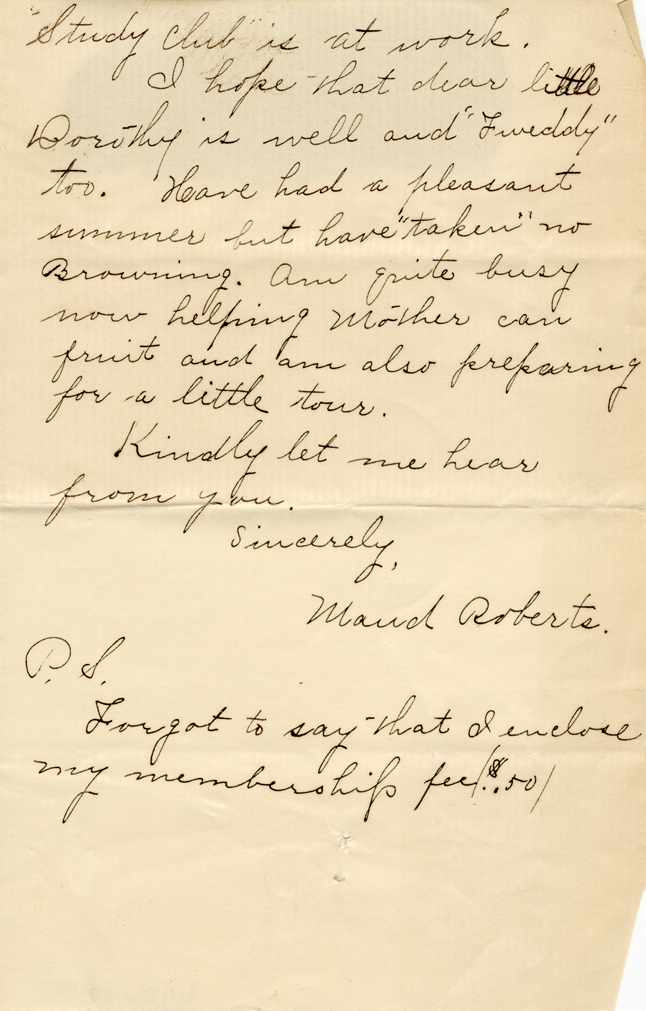 "Study club" is at work.
I hope that dear little
Dorothy is well and "Fweddy"
too. Have had a pleasant
summer but have "taken" no
Browning. Am quite busy
now helping Mother can
fruit and am also preparing
for a little tour.
Kindly let me hear
from you.
Sincerely,
Maud Roberts.
P. S.
Forgot to say that I enclose
my membership fee ($.50)